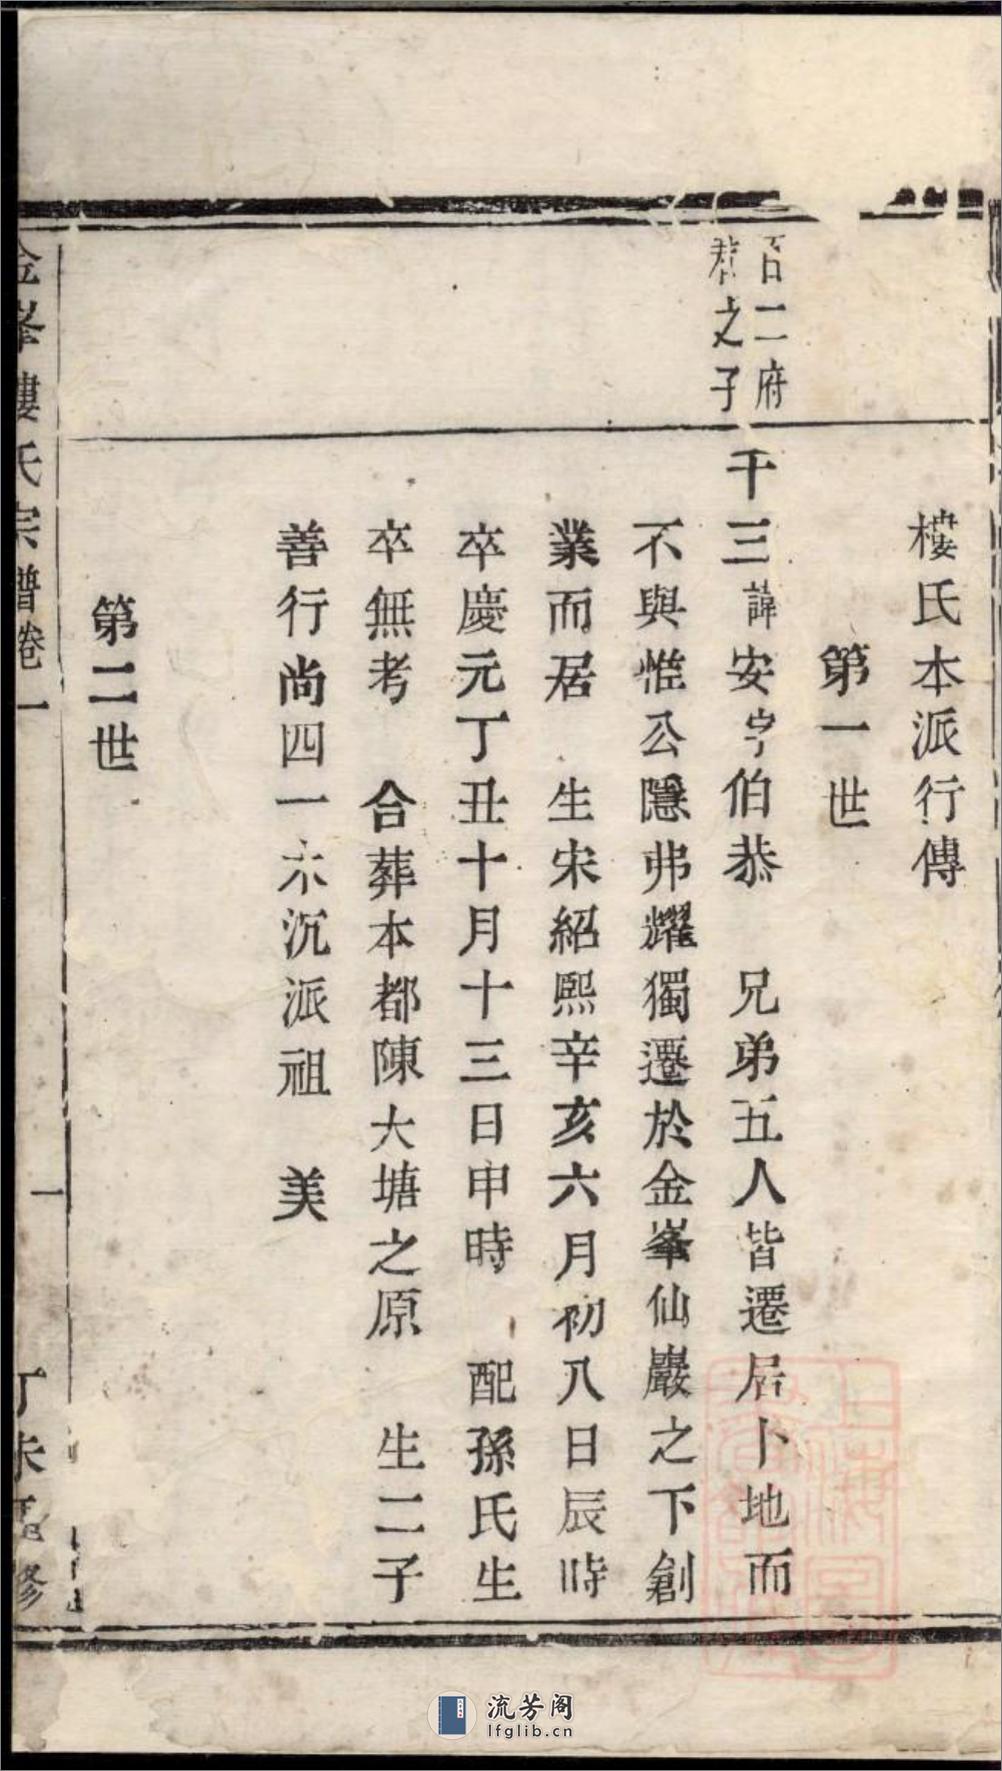 樓氏本派行傳
第一世
百二府
恭之子
千三諱安字伯恭　兄弟五人皆遷居卜地而
不與惟公隱弗耀獨遷於金峯仙巖之下創
業而居　生宋紹熙辛亥六月初八日辰時
卒慶元丁丑十月十三日申時　配孫氏生
卒無考　合葬本都陳大塘之原　生二子
善行尚四一木沉派祖　美
第二世
金峯樓氏宗譜卷一
一
丁未重修
流芳阁
lfglib.cn